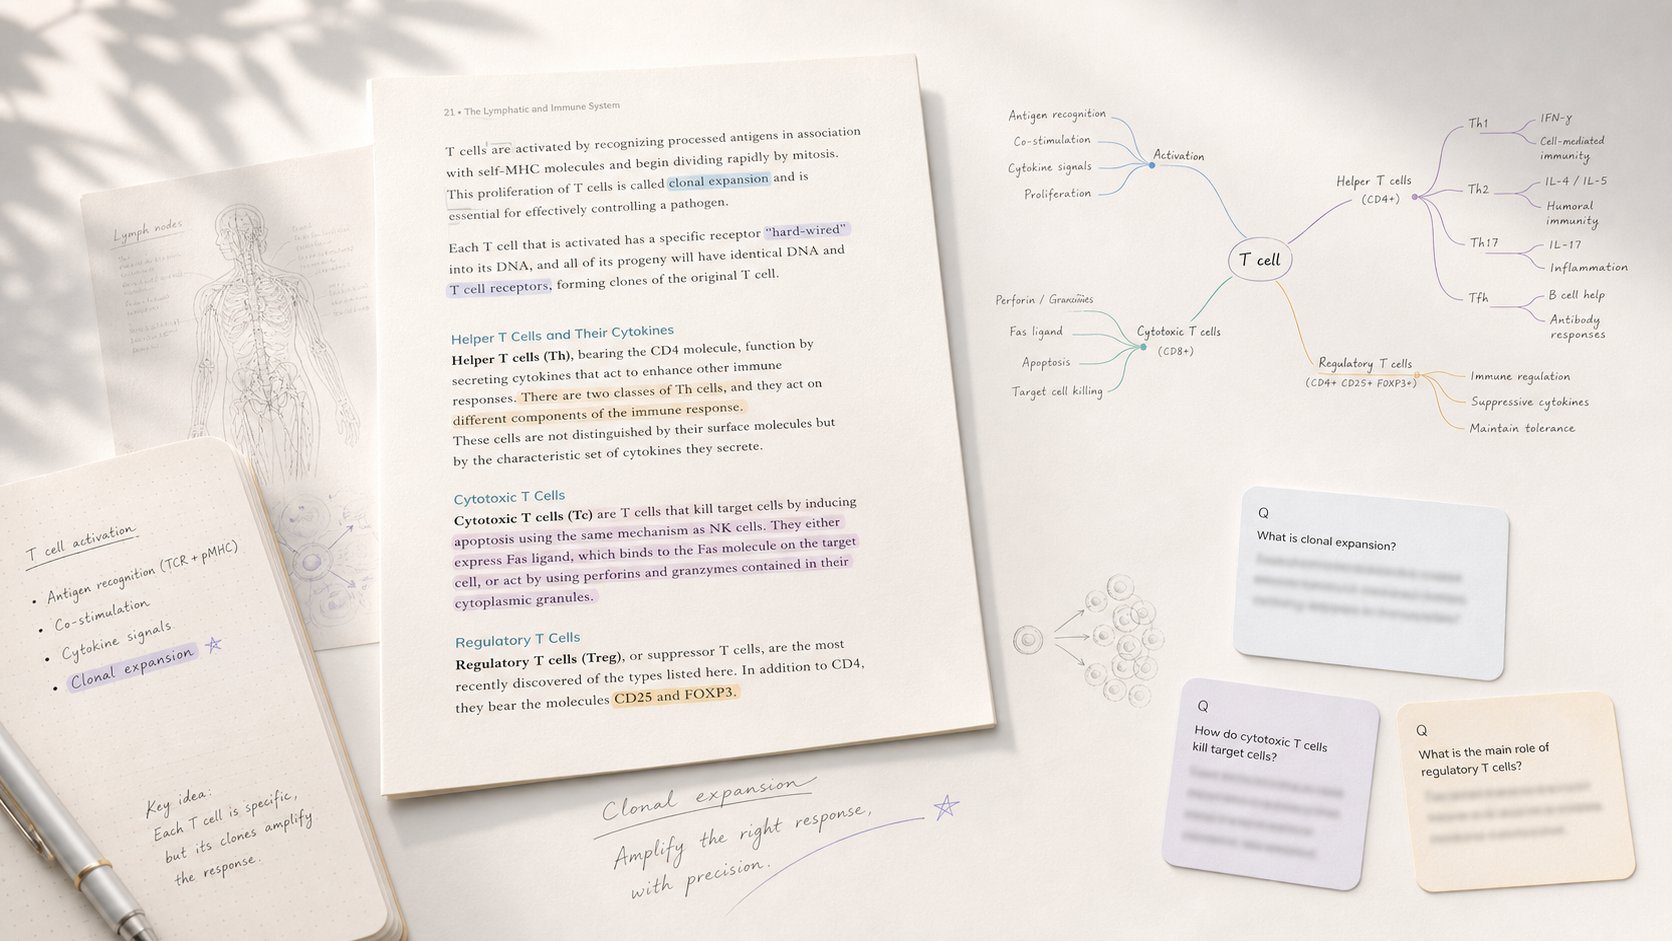 21 • The Lymphatic and Immune System
T cells are activated by recognizing processed antigens in association
with self-MHC molecules and begin dividing rapidly by mitosis.
This proliferation of T cells is called clonal expansion and is
essential for effectively controlling a pathogen.
Each T cell that is activated has a specific receptor "hard-wired"
into its DNA, and all of its progeny will have identical DNA and
T cell receptors, forming clones of the original T cell.
Helper T Cells and Their Cytokines
Helper T cells (Th), bearing the CD4 molecule, function by
secreting cytokines that act to enhance other immune
responses. There are two classes of Th cells, and they act on
different components of the immune response.
These cells are not distinguished by their surface molecules but
by the characteristic set of cytokines they secrete.
Cytotoxic T Cells
Cytotoxic T cells (Tc) are T cells that kill target cells by inducing
apoptosis using the same mechanism as NK cells. They either
express Fas ligand, which binds to the Fas molecule on the target
cell, or act by using perforins and granzymes contained in their
cytoplasmic granules.
Regulatory T Cells
Regulatory T cells (Treg), or suppressor T cells, are the most
recently discovered of the types listed here. In addition to CD4,
they bear the molecules CD25 and FOXP3.
Lymph nodes
T cell activation
• Antigen recognition (TCR + pMHC)
• Co-stimulation
• Cytokine signals
• Clonal expansion
Key idea:
Each T cell is specific,
but its clones amplify
the response.
Clonal expansion
Amplify the right response,
with precision.
T cell
Activation
Antigen recognition
Co-stimulation
Cytokine signals
Proliferation
Helper T cells
(CD4+)
Th1
IFN-γ
Cell-mediated
immunity
Th2
IL-4 / IL-5
Humoral
immunity
Th17
IL-17
Inflammation
Tfh
B cell help
Antibody
responses
Cytotoxic T cells
(CD8+)
Perforin /
Fas ligand
Apoptosis
Target cell killing
Regulatory T cells
(CD4+ CD25+ FOXP3+)
Immune regulation
Suppressive cytokines
Maintain tolerance
Q
What is clonal expansion?
Q
How do cytotoxic T cells
kill target cells?
Q
What is the main role of
regulatory T cells?